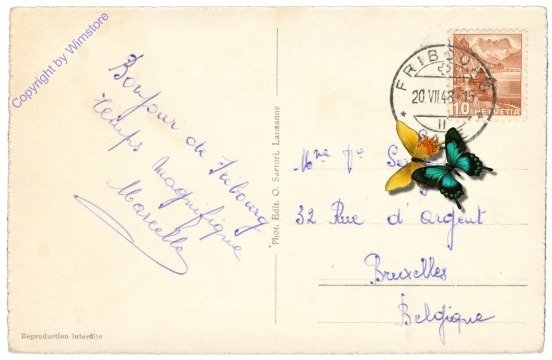 Copyright by Wimstore
Bonjour de Fribourg
temps magnifique
Marcelle
Phot. Edit. O. Sartori, Lausanne
Reproduction interdite
FRIBOURG
20.VII.48
II
10 HELVETIA
Mme
32 Rue d'argent
Bruxelles
Belgique